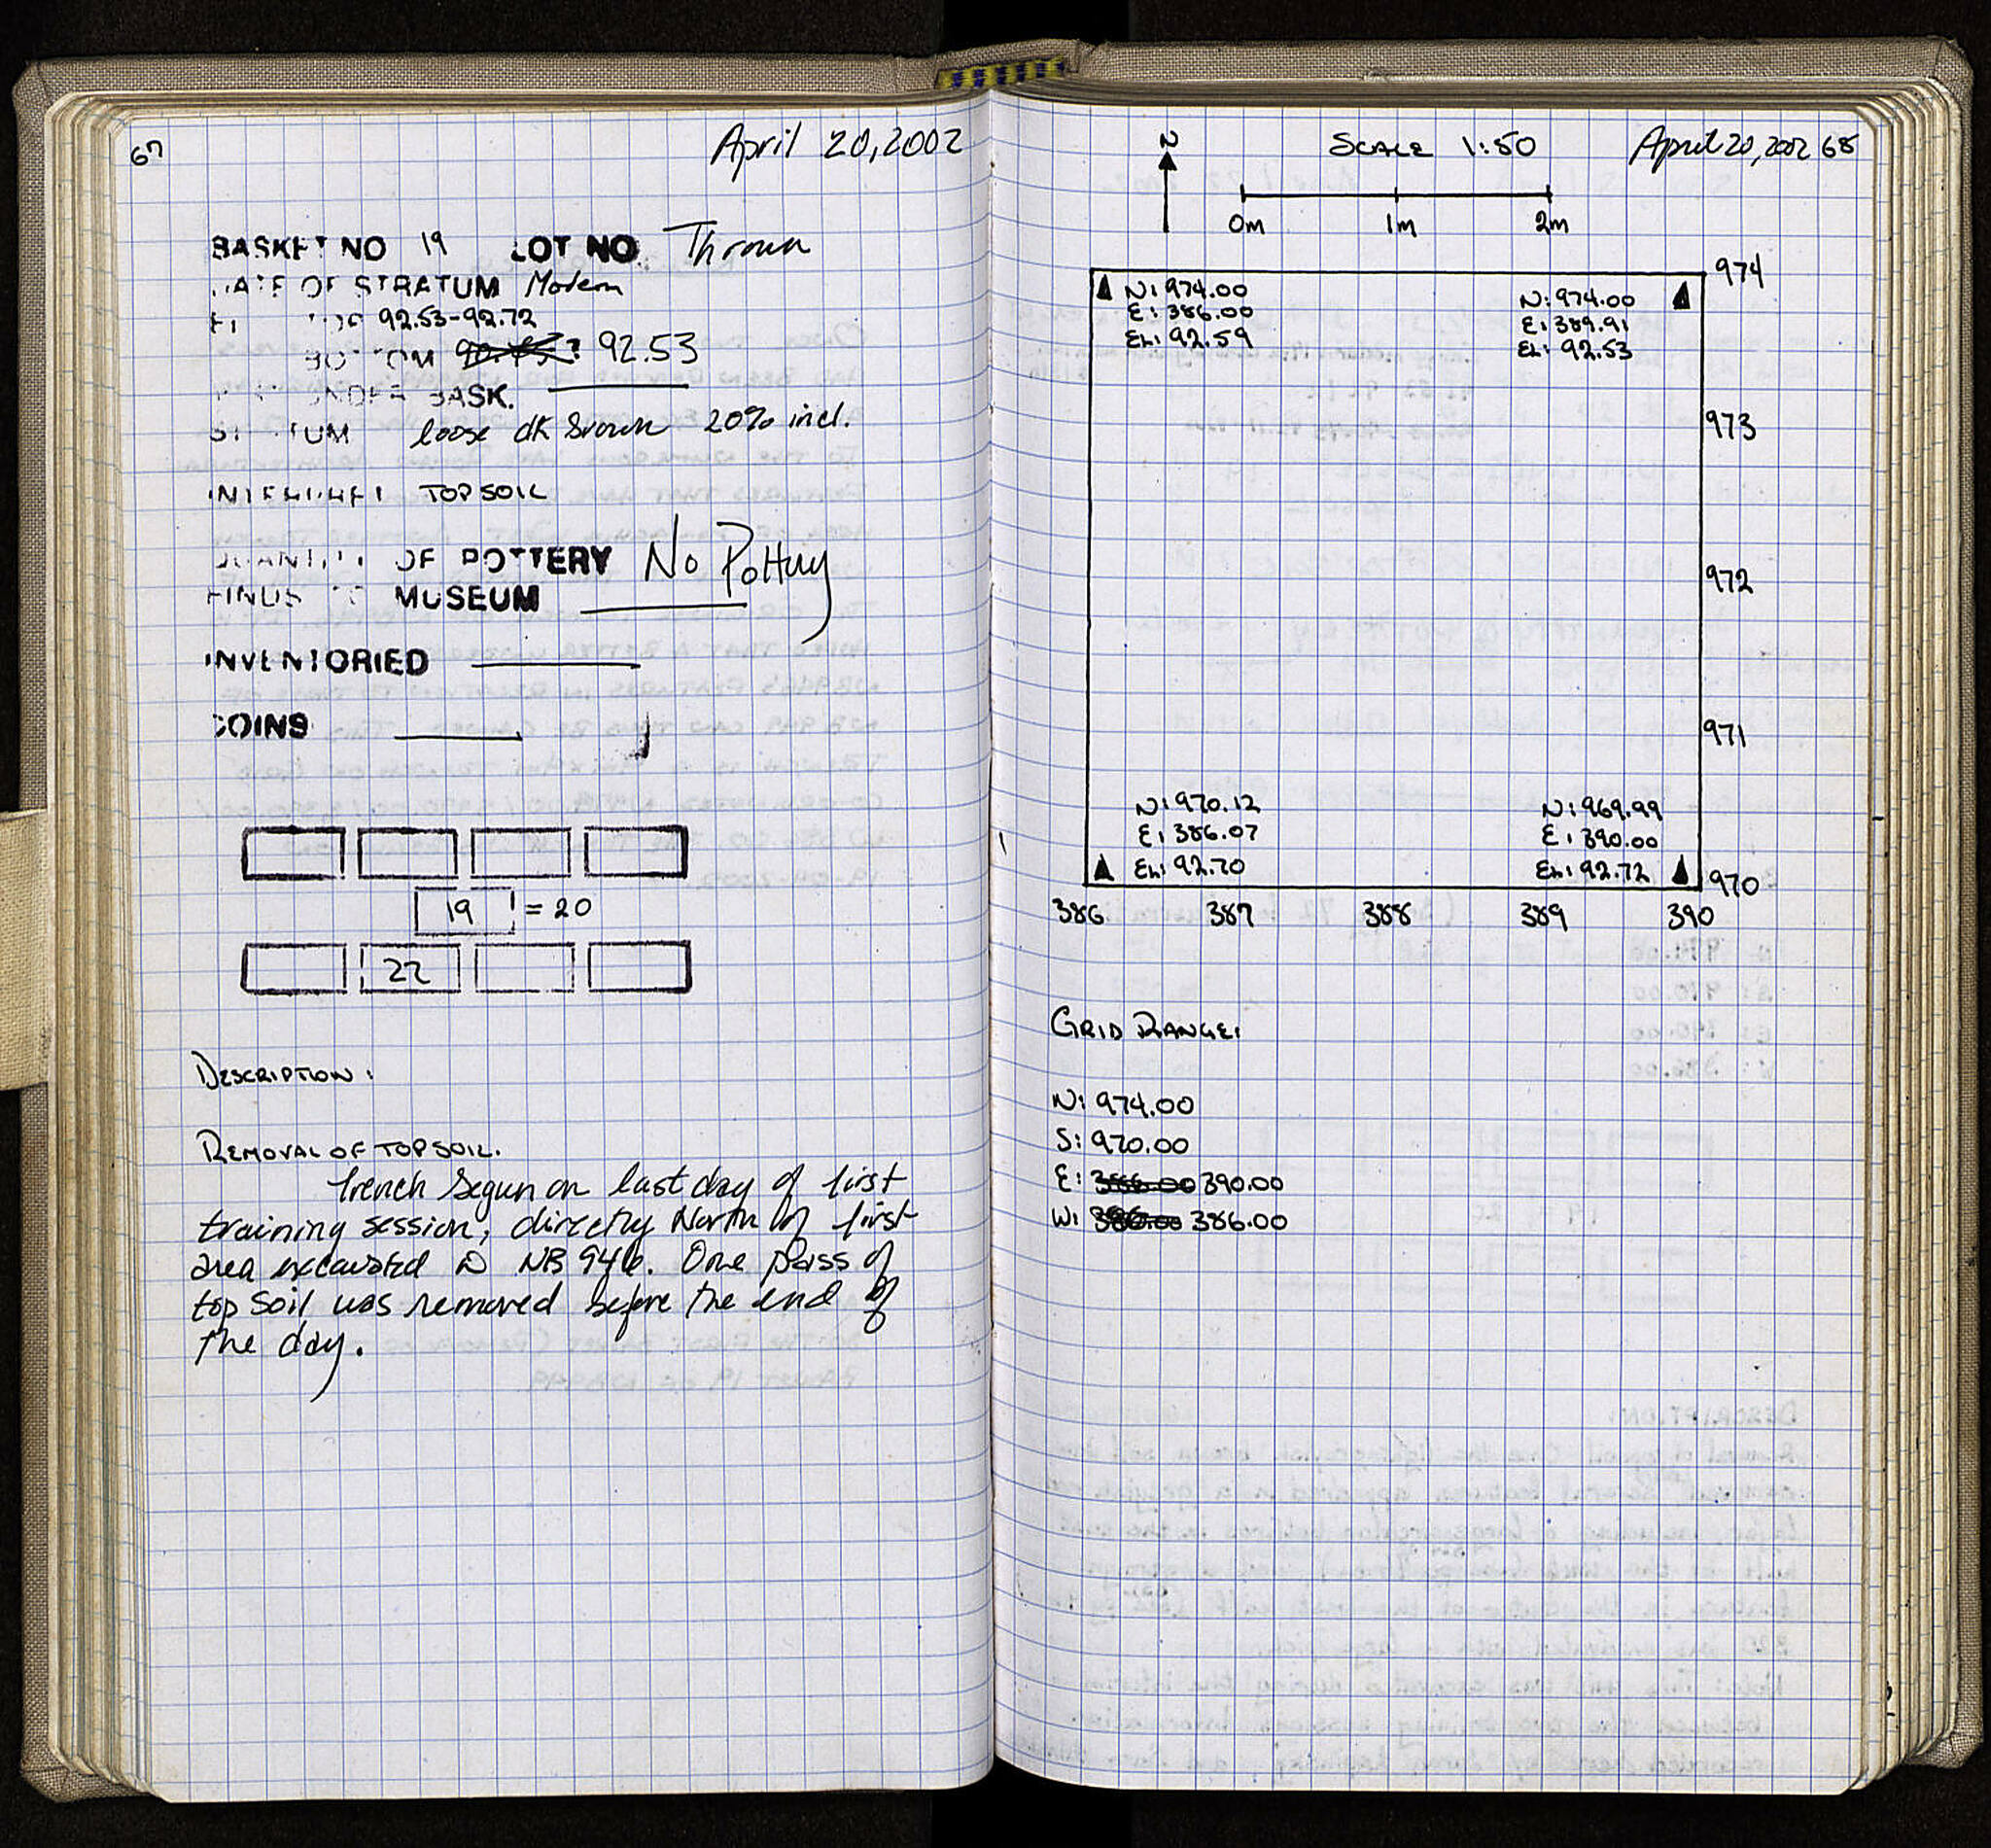 67
April 20, 2002
BASKET NO 19 LOT NO Thrown
DATE OF STRATUM Modern
92.53-92.72
BOTTOM 92.53
UNDER BASK.
STRATUM loose dk brown 20% incl.
INTERPRET TOPSOIL
QUANTITY OF POTTERY No Pottery
FINDS TO MUSEUM
INVENTORIED
COINS
19 = 20
22
DESCRIPTION:
REMOVAL OF TOPSOIL.
Trench begun on last day of first
training session, directly North of first
area excavated in NB 946. One pass of
top soil was removed before the end of
the day.
N SCALE 1:50 April 20, 2002 68
0m 1m 2m
974
N: 974.00
E: 386.00
EL: 92.59
N: 974.00
E: 389.91
EL: 92.53
973
972
971
N: 970.12
E: 386.07
EL: 92.70
N: 969.99
E: 390.00
EL: 92.72
970
386 387 388 389 390
GRID RANGE:
N: 974.00
S: 970.00
E: 386.00 390.00
W: 390.00 386.00